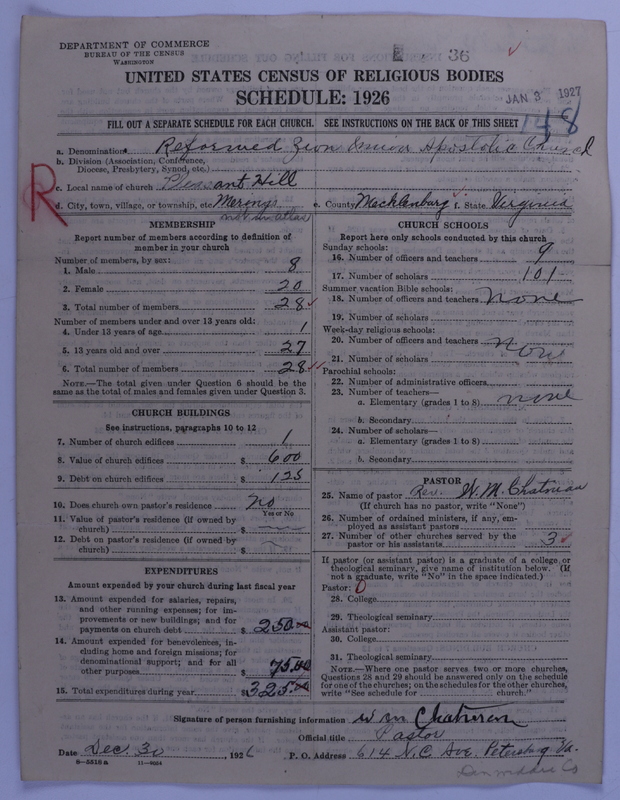 DEPARTMENT OF COMMERCE
BUREAU OF THE CENSUS
WASHINGTON
36
UNITED STATES CENSUS OF RELIGIOUS BODIES
SCHEDULE: 1926
JAN 3 1927
148
FILL OUT A SEPARATE SCHEDULE FOR EACH CHURCH. SEE INSTRUCTIONS ON THE BACK OF THIS SHEET
a. Denomination Reformed Zion Union Apostolic Church
b. Division (Association, Conference,
Diocese, Presbytery, Synod, etc.)
c. Local name of church Pleasant Hill
R
d. City, town, village, or township, etc. e. County Mecklenburg f. State Virginia
not in atlas
MEMBERSHIP
Report number of members according to definition of
member in your church
Number of members, by sex:
1. Male 8
2. Female 20
3. Total number of members 28
Number of members under and over 13 years old:
4. Under 13 years of age 1
5. 13 years old and over 27
6. Total number of members 28
NOTE.—The total given under Question 6 should be the
same as the total of males and females given under Question 3.
CHURCH BUILDINGS
See instructions, paragraphs 10 to 12
7. Number of church edifices 1
8. Value of church edifices $ 600
9. Debt on church edifices $ 125
10. Does church own pastor's residence no
Yes or No
11. Value of pastor's residence (if owned by
church) $
12. Debt on pastor's residence (if owned by
church) $
EXPENDITURES
Amount expended by your church during last fiscal year
13. Amount expended for salaries, repairs,
and other running expenses; for im-
provements or new buildings; and for
payments on church debt $ 250.00
14. Amount expended for benevolences, in-
cluding home and foreign missions; for
denominational support; and for all
other purposes $ 75.00
15. Total expenditures during year $ 325.00
CHURCH SCHOOLS
Report here only schools conducted by this church
Sunday schools:
16. Number of officers and teachers 9
17. Number of scholars 101
Summer vacation Bible schools:
18. Number of officers and teachers none
19. Number of scholars
Week-day religious schools:
20. Number of officers and teachers none
21. Number of scholars
Parochial schools:
22. Number of administrative officers
23. Number of teachers—
a. Elementary (grades 1 to 8) none
b. Secondary
24. Number of scholars—
a. Elementary (grades 1 to 8)
b. Secondary
PASTOR
25. Name of pastor Rev. W. M. Chatman
(If church has no pastor, write "None")
26. Number of ordained ministers, if any, em-
ployed as assistant pastors
27. Number of other churches served by the
pastor or his assistants 3
If pastor (or assistant pastor) is a graduate of a college or
theological seminary, give name of institution below. (If
not a graduate, write "No" in the space indicated.)
Pastor: 0
28. College
29. Theological seminary
Assistant pastor:
30. College
31. Theological seminary
NOTE.—Where one pastor serves two or more churches,
Questions 28 and 29 should be answered only on the schedule
for one of the churches; on the schedules for the other churches,
write "See schedule for church."
Signature of person furnishing information W m Chatman
Official title Pastor
Date Dec. 30, 1926 P. O. Address 614 N.C. Ave. Petersburg Va.
8-5516a 11-9054
Dinwiddie Co